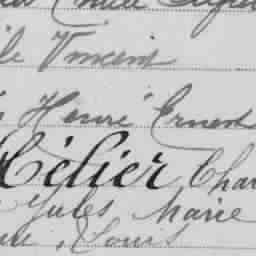 Vincent
Henri Ernest
Hélier Char
Jules Marie
, Louis